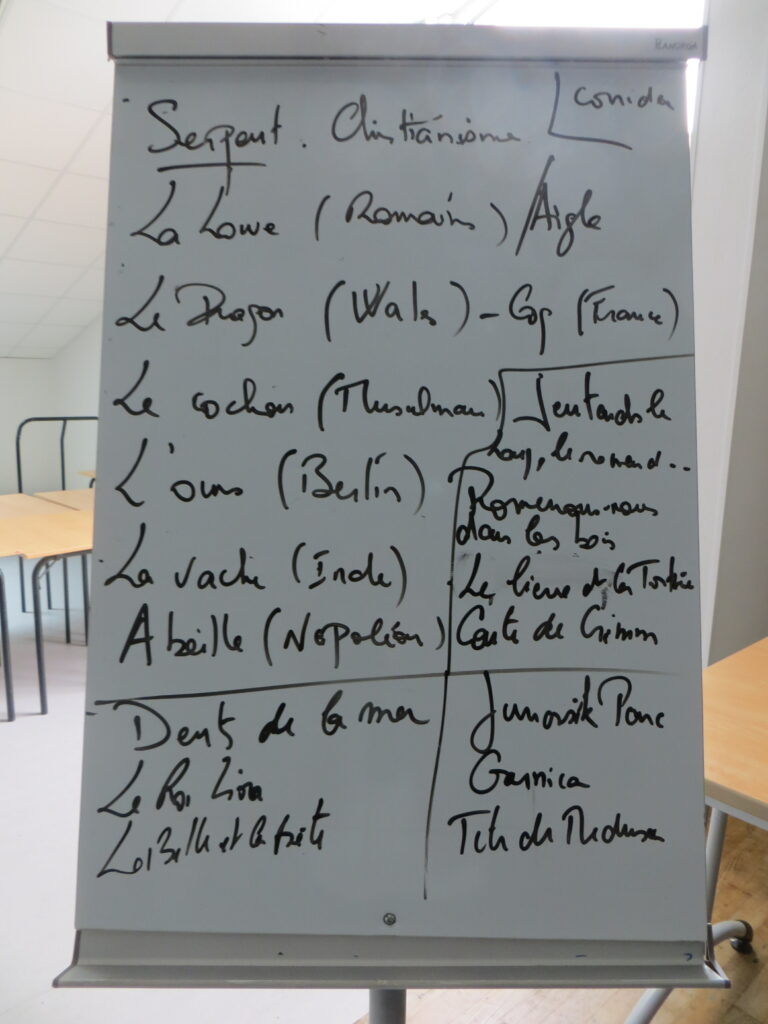 Serpent. Christianisme
Corrida
La Louve (Romains) / Aigle
Le Dragon (Wales) - Coq (France)
Le cochon (Musulman)
L'ours (Berlin)
La vache (Inde)
Abeille (Napoléon)
J'entends le
loup, le renard..
Promenons-nous
dans les bois
Le lièvre et la Tortue
Conte de Grimm
Dents de la mer
Le Roi Lion
La Belle et la bête
Jurassik Parc
Garnica
Tête de Meduse